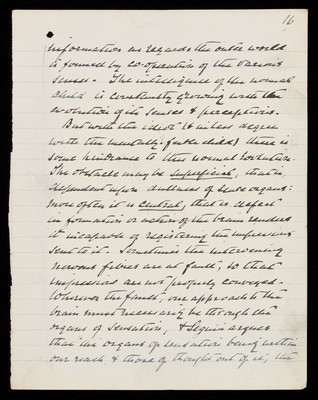 16
information as regards the outer world
is formed by co-operation of the various
senses. The intelligence of the normal
child is constantly growing with the
evolution of its senses & perceptions.
But with the idiot (& in less degree
with the mentally-feeble child) there is
some hindrance to this normal evolution.
The obstacle may be superficial, that is,
dependent upon dullness of sense organs:
more often it is central, that is defect
in formation or action of the brain renders
it incapable of registering the impressions
sent to it. Sometimes the intervening
nervous fibres are at fault, so that
impressions are not properly conveyed.
Wherever the fault, our approach to the
brain must necessarily be through the
organs of sensation, & Seguin argues
that the organs of sensation being within
our reach & those of thought out of it, the